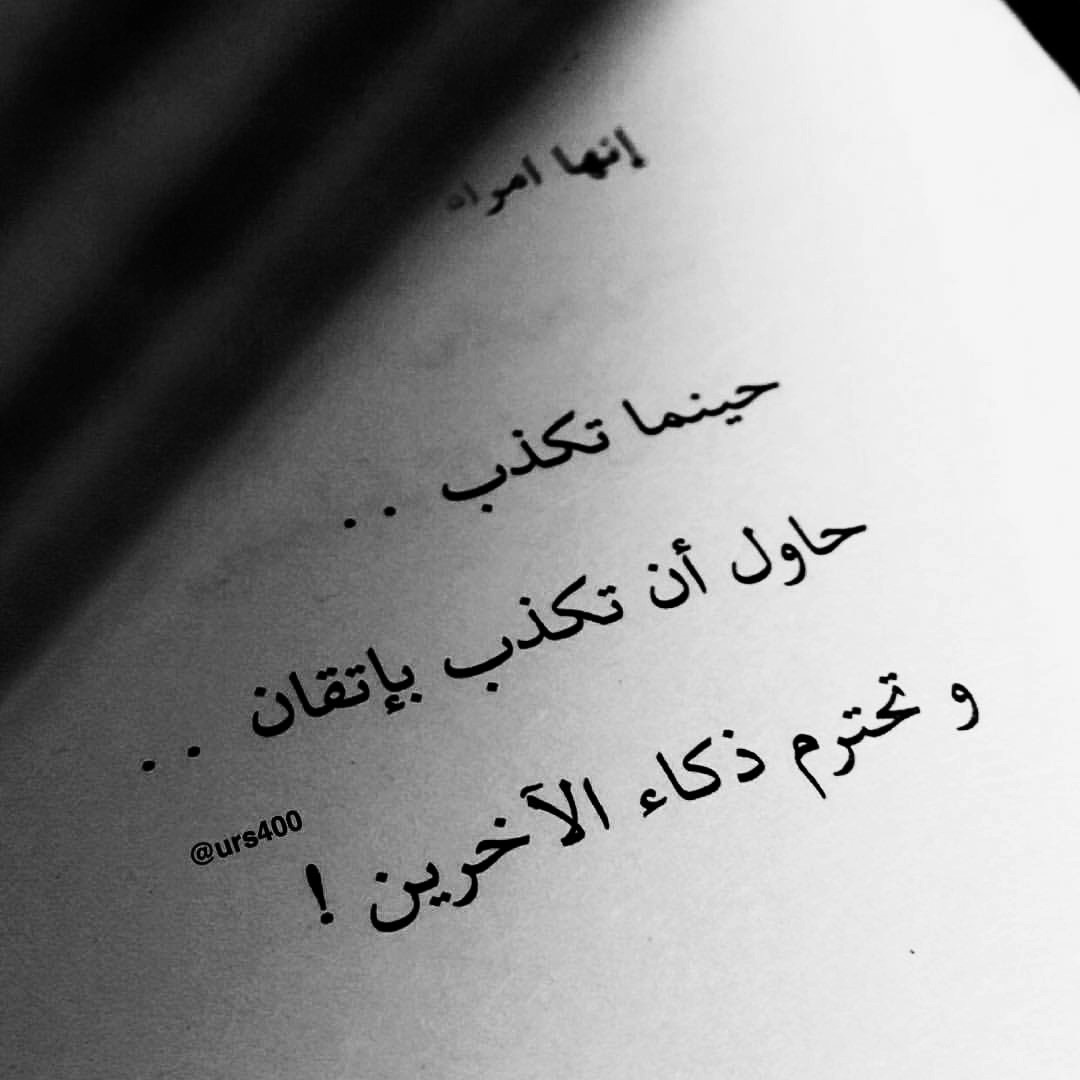 إنها امرأة
حينما تكذب . .
حاول أن تكذب بإتقان . .
و تحترم ذكاء الآخرين !
@urs400